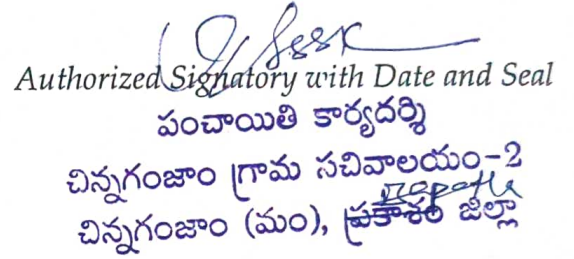 Authorized Signatory with Date and Seal
పంచాయితి కార్యదర్శి
చిన్నగంజాం గ్రామ సచివాలయం-2
Bapatla
చిన్నగంజాం (మం), ప్రకాశం జిల్లా